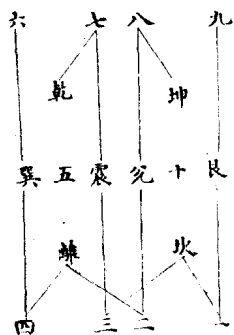 六 七 八 九
乾 坤
巽 五 震 兌 十 艮
離 坎
四 三 二 一